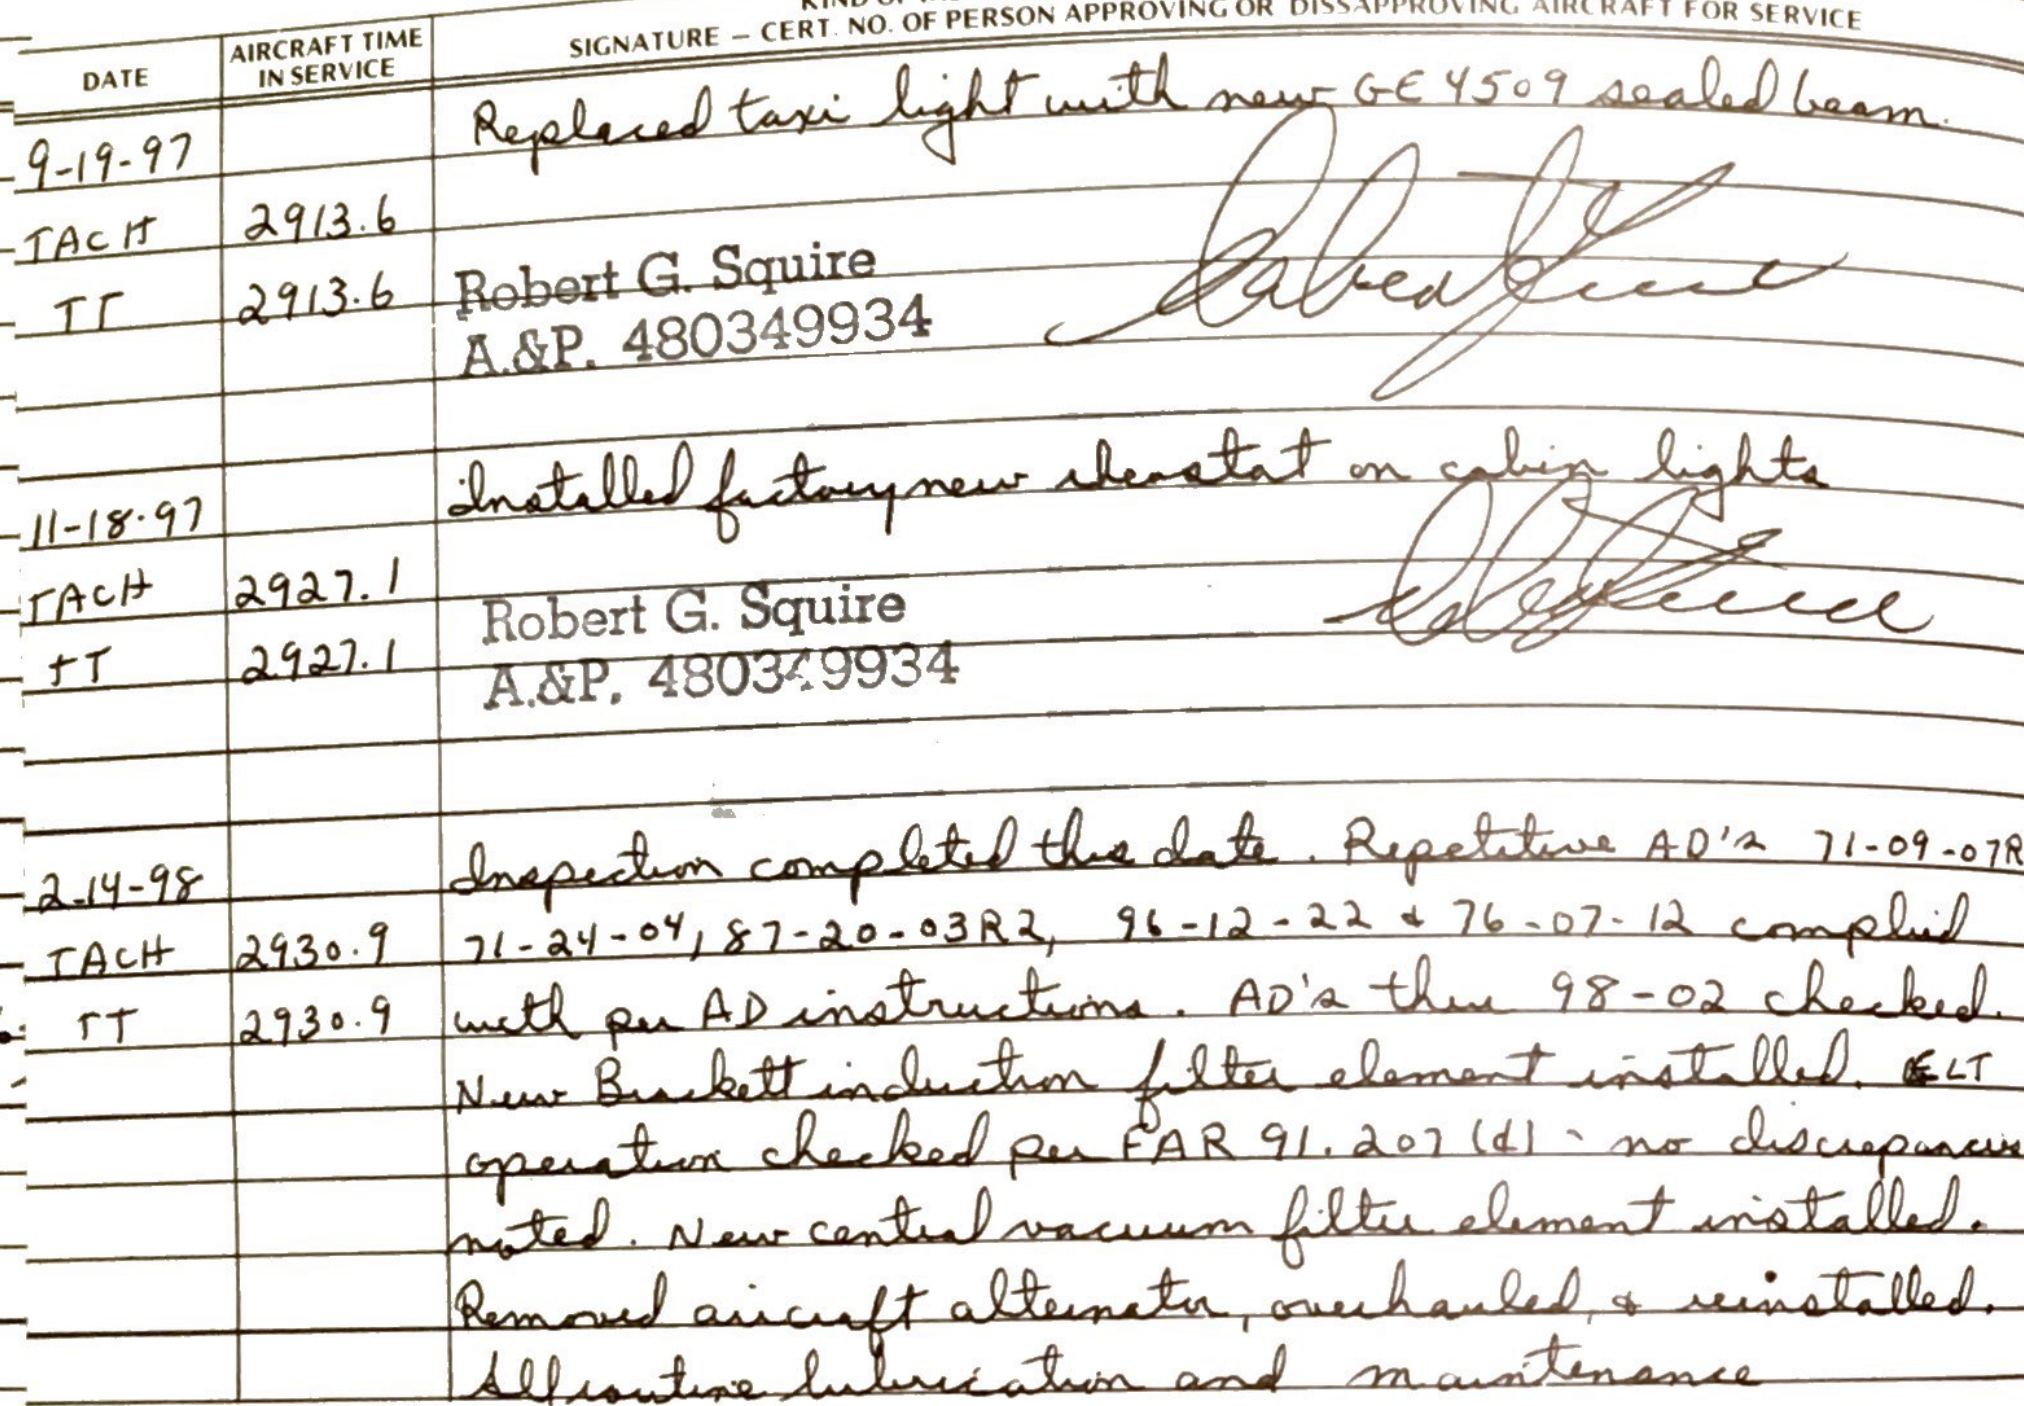 SIGNATURE – CERT. NO. OF PERSON APPROVING OR DISSAPPROVING AIRCRAFT FOR SERVICE
DATE
AIRCRAFT TIME
IN SERVICE
9-19-97 Replaced taxi light with new GE 4509 sealed beam.
TACH 2913.6
TT 2913.6 Robert G. Squire
A.&P. 480349934
11-18-97 Installed factory new rheostat on cabin lights
TACH 2927.1 Robert G. Squire
TT 2927.1 A.&P. 480349934
2-14-98 Inspection completed this date. Repetitive AD's 71-09-07R
TACH 2930.9 71-24-04, 87-20-03R2, 96-12-22 & 76-07-12 complied
TT 2930.9 with per AD instructions. AD's thru 98-02 checked.
New Brackett induction filter element installed. ELT
operation checked per FAR 91.207 (d) - no discrepancies
noted. New central vacuum filter element installed.
Removed aircraft alternator, overhauled, & reinstalled.
All routine lubrication and maintenance